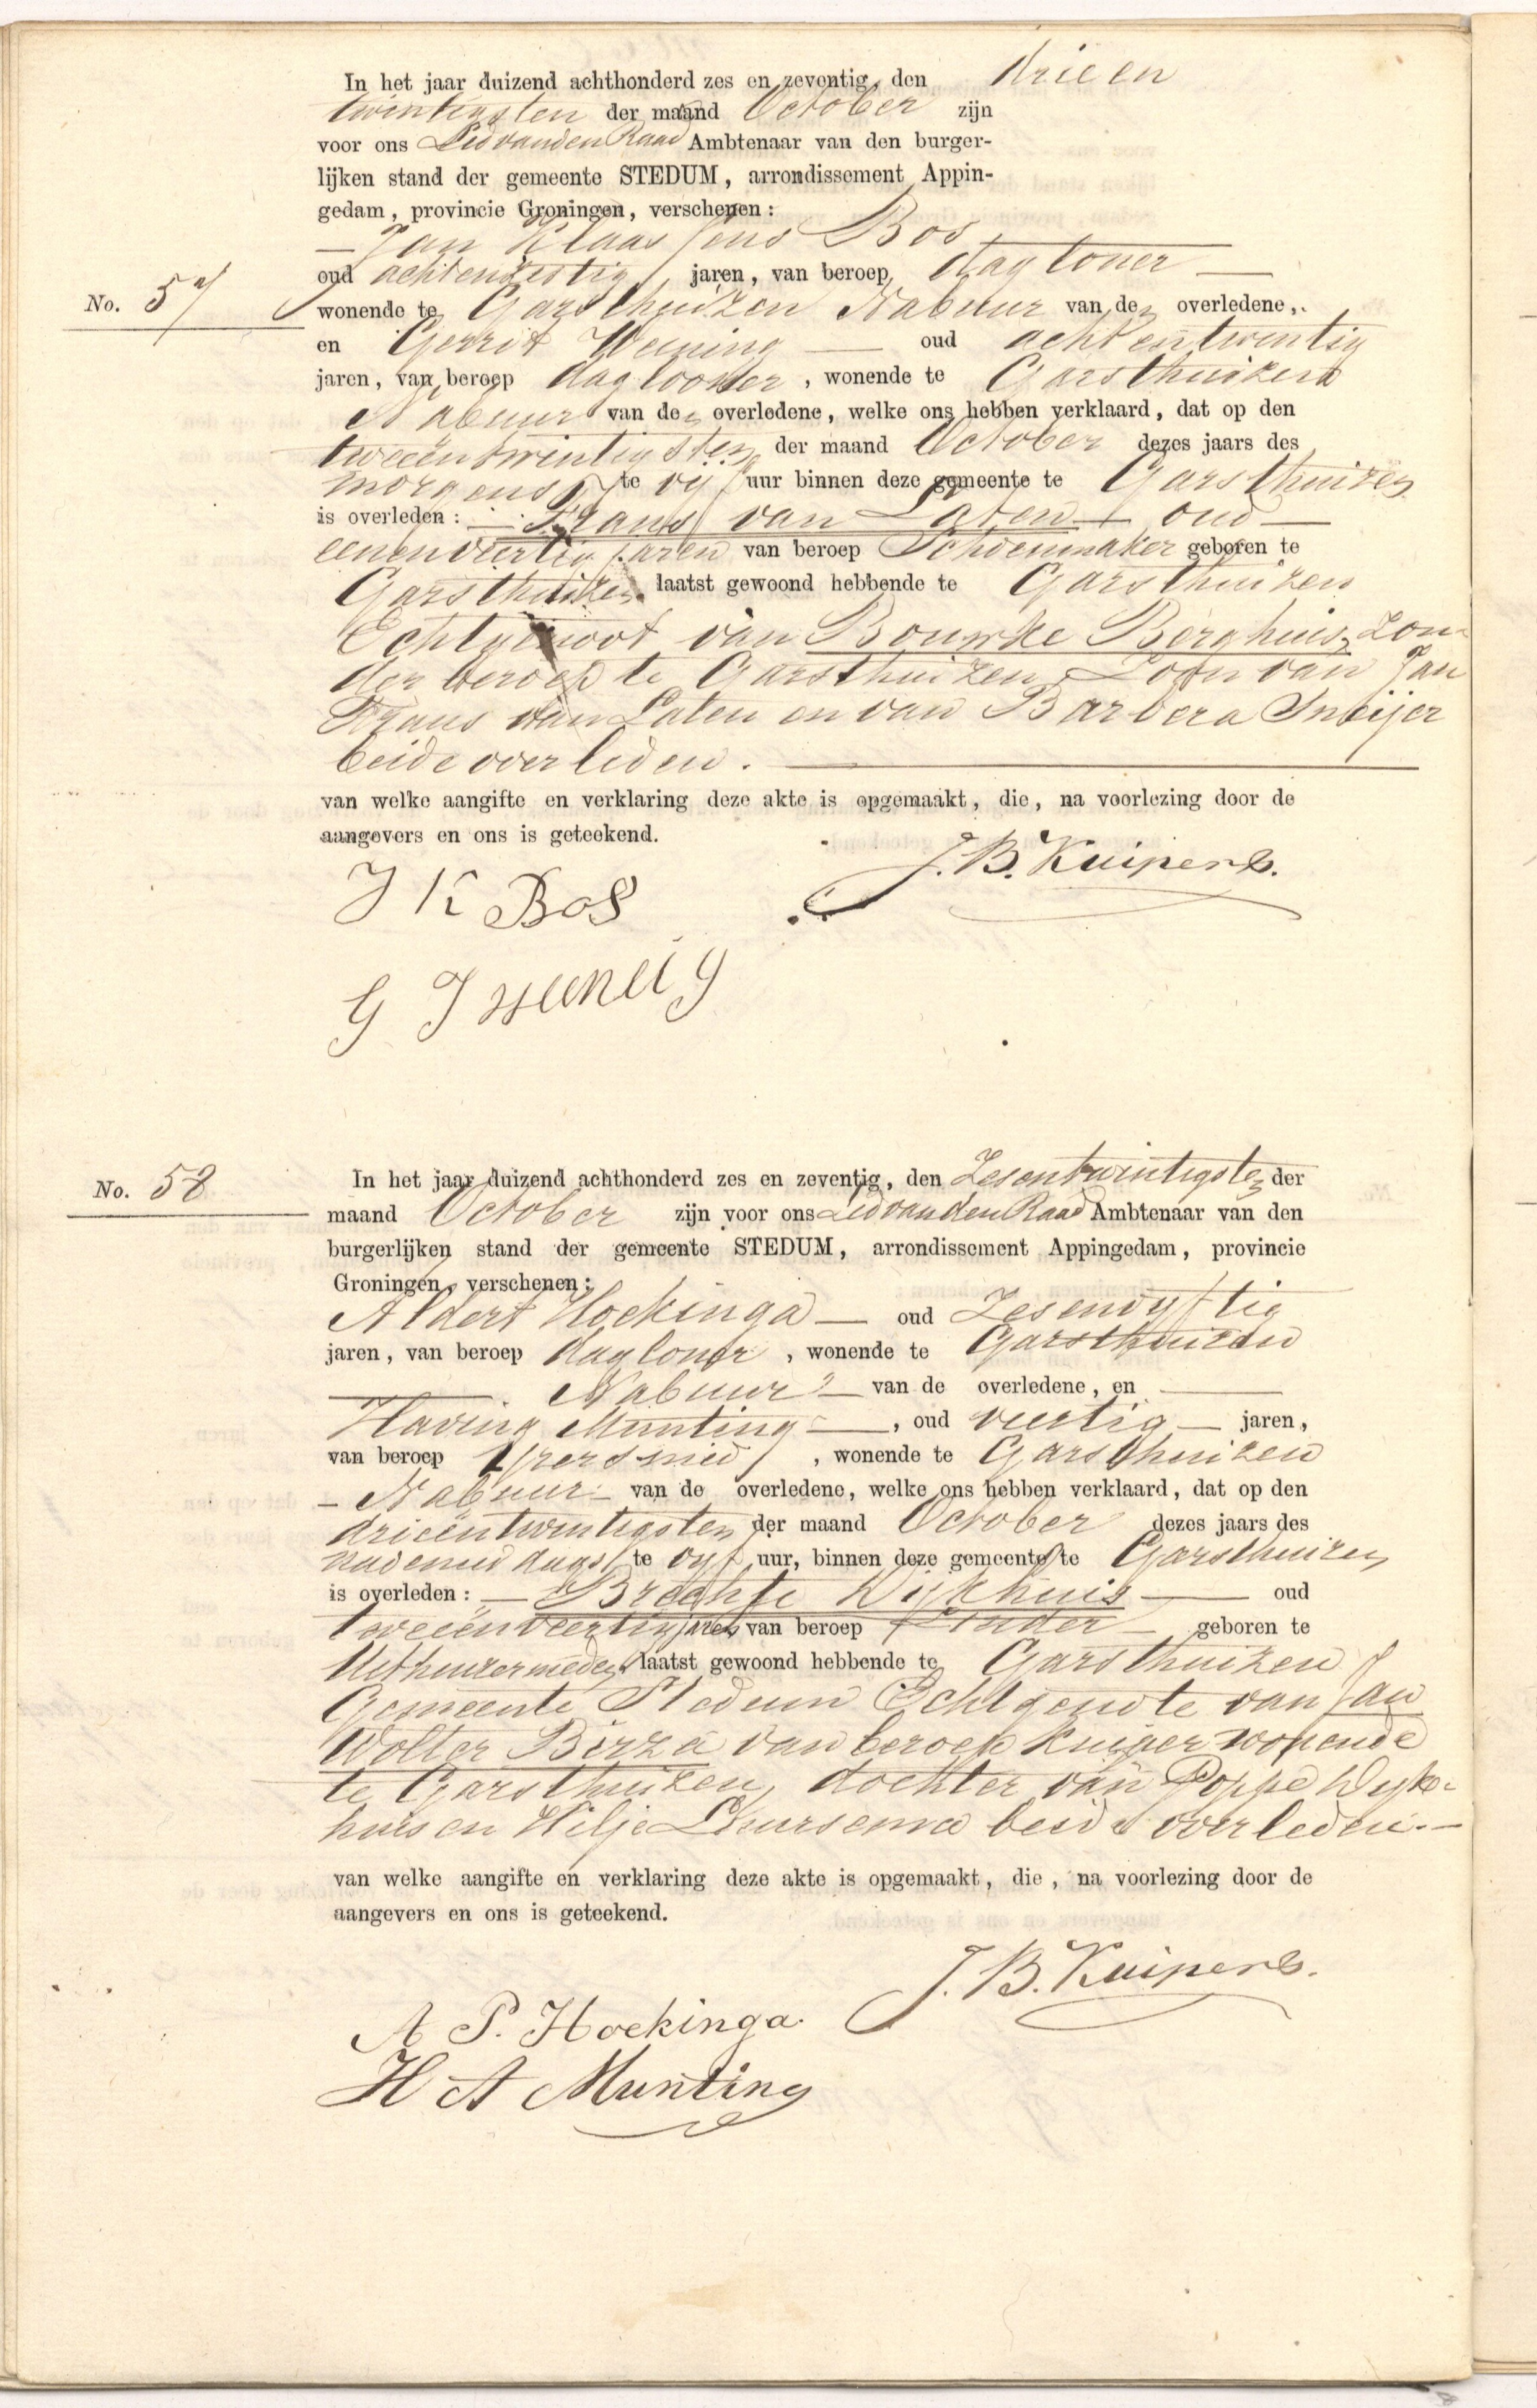 In het jaar duizend achthonderd zes en zeventig, den drie en
twintigsten der maand October zijn
voor ons Lid van den Raad Ambtenaar van den burger-
lijken stand der gemeente STEDUM, arrondissement Appin-
gedam, provincie Groningen, verschenen:
— Jan Klaassens Bos,
oud achtenzestig jaren, van beroep dagloner —
No. 57
wonende te Garsthuizen Nabuur van den overledene,
en Gerrit Wening — oud achtentwintig
jaren, van beroep daglooner, wonende te Garsthuizen
Nabuur van den overledene, welke ons hebben verklaard, dat op den
tweeëntwintigsten der maand October dezes jaars des
morgens te vijf uur binnen deze gemeente te Garsthuizen
is overleden: — Frans van Laten — oud —
eenenveertig jaren van beroep Schoenmaker geboren te
Garsthuizen laatst gewoond hebbende te Garsthuizen
Echtgenoot van Bouwke Berghuis, zon-
der beroep te Garsthuizen, Zoon van Jan
Frans van Laten en van Barbera Sneijer
beide overleden. —
van welke aangifte en verklaring deze akte is opgemaakt, die, na voorlezing door de
aangevers en ons is geteekend.
J. B. Kuipers.
J K Bos
G J
No. 58
In het jaar duizend achthonderd zes en zeventig, den Zesentwintigsten der
maand October zijn voor ons Lid van den Raad Ambtenaar van den
burgerlijken stand der gemeente STEDUM, arrondissement Appingedam, provincie
Groningen, verschenen:
Aldert Hoekinga — oud Zesenvyftig
jaren, van beroep dagloner, wonende te Garsthuizen
— Nabuur — van de overledene, en —
Having Munting —, oud veertig — jaren,
van beroep Yzersmid, wonende te Garsthuizen
— Nabuur — van de overledene, welke ons hebben verklaard, dat op den
drieëntwintigsten der maand October dezes jaars des
nademiddags te vyf uur, binnen deze gemeente te Garsthuizen
is overleden: — Brechtje Wijkhuis — oud
tweeënveertig jaren van beroep zonder — geboren te
Uithuizermeden laatst gewoond hebbende te Garsthuizen
Gemeente Stedum Echtgenote van Jan
Wolter Birza van beroep kuiper wonende
te Garsthuizen, dochter van Poppe Wijk-
huis en Hilje Duursema beide overleden. —
van welke aangifte en verklaring deze akte is opgemaakt, die, na voorlezing door de
aangevers en ons is geteekend.
J. B. Kuipers.
A P. Hoekinga.
H A Munting